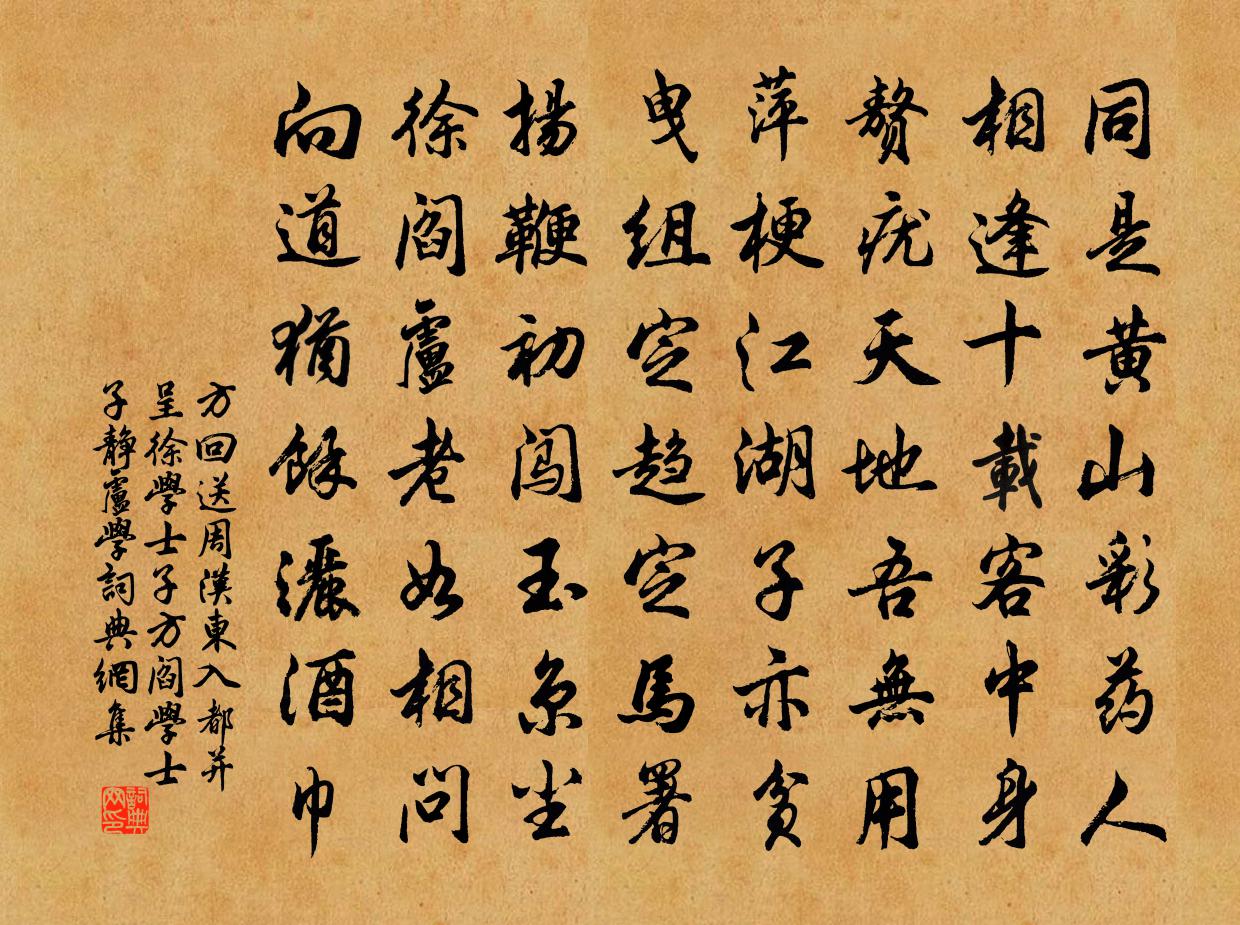 同是黄山彩药人
相逢十載客中身
贅疣天地吾無用
萍梗江湖子亦貧
曳組定趋定馬署
揚鞭初闯玉京尘
徐阎盧老如相問
向道猶餘灑酒巾
方回送周漢東入都并
呈徐學士子方阎學士
子静盧學詞典網集
詞典网印